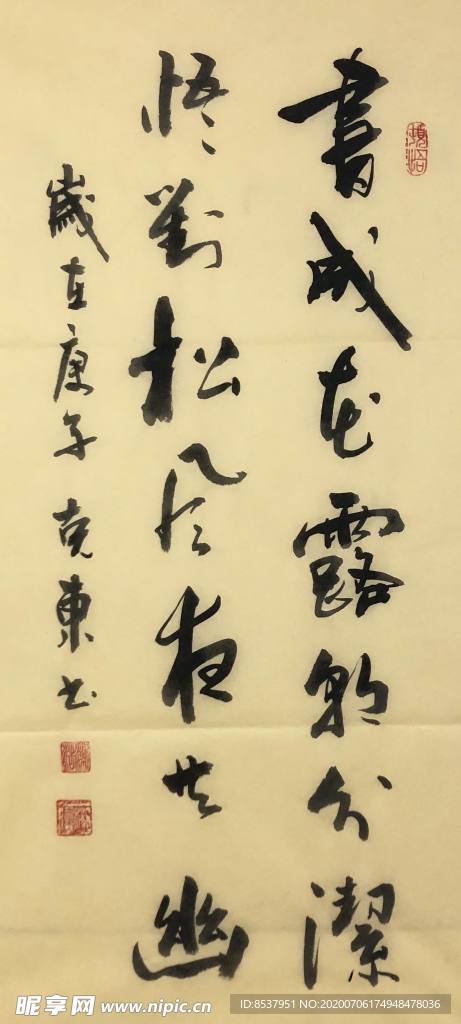 書成花露朝分潔
悟對松風夜共幽
歲在庚子 克東书
昵享网 www.nipic.cn
ID:8537951 NO:20200706174948478036